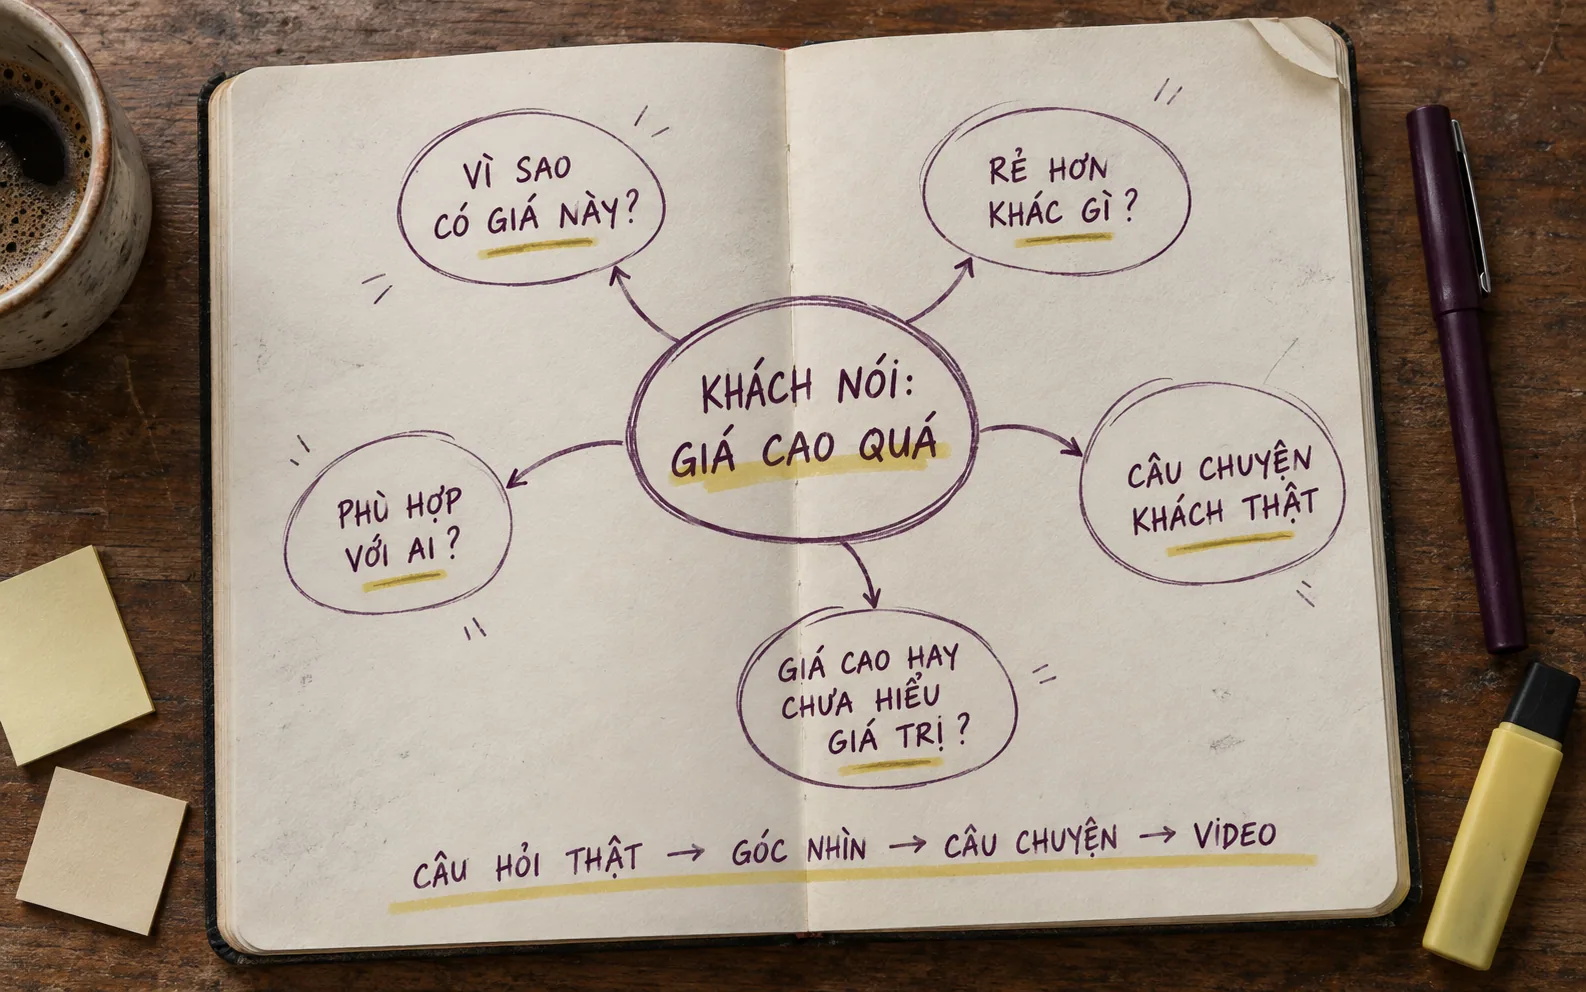 VÌ SAO
CÓ GIÁ NÀY?
RẺ HƠN
KHÁC GÌ?
KHÁCH NÓI:
GIÁ CAO QUÁ
PHÙ HỢP
VỚI AI?
CÂU CHUYỆN
KHÁCH THẬT
GIÁ CAO HAY
CHƯA HIỂU
GIÁ TRỊ?
CÂU HỎI THẬT → GÓC NHÌN → CÂU CHUYỆN → VIDEO